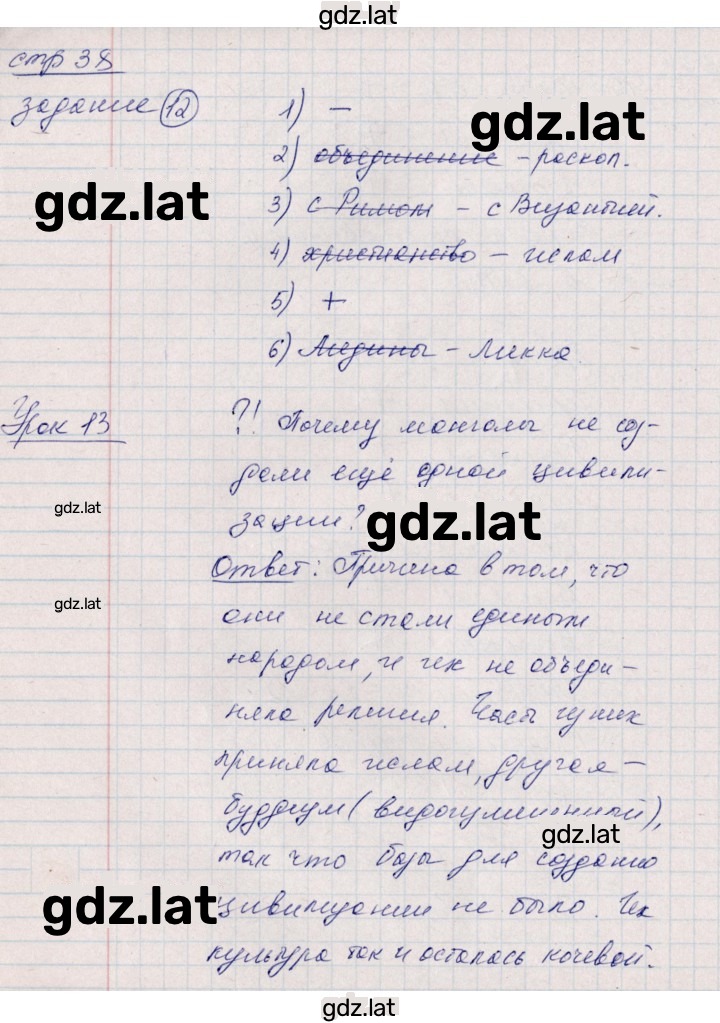 gdz.lat
стр 38
задание 12
1) —
gdz.lat
2) объединение - раскол.
gdz.lat
3) с Римом - с Византией.
4) христианство - ислам
5) +
6) Медины - Мекка
gdz.lat
Урок 13
?! Почему монголы не соз-
дали ещё одной цивили-
gdz.lat
зации?
gdz.lat
Ответ: Причина в том, что
gdz.lat
они не стали единым
народом, и их не объеди-
няла религия. Часть из них
приняла ислам, другая -
буддизм
gdz.lat
так что базы для создания
gdz.lat
цивилизации не было. Их
культура так и осталась кочевой.
gdz.lat